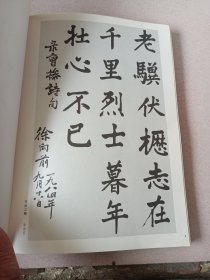 老驥伏櫪志在
千里烈士暮年
壮心不已
录曹操詩句
徐向前
一九八四年
九月六日